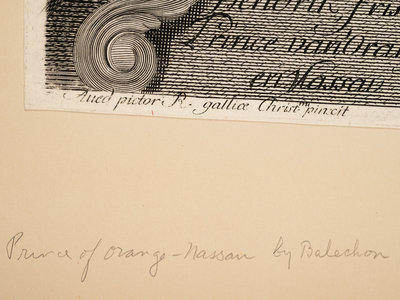 Hendrik Fri
Prince van Ora
en Nassau
Aved pictor R. galliæ Christ.m pinxit
Prince of Orange-Nassau by Balechon